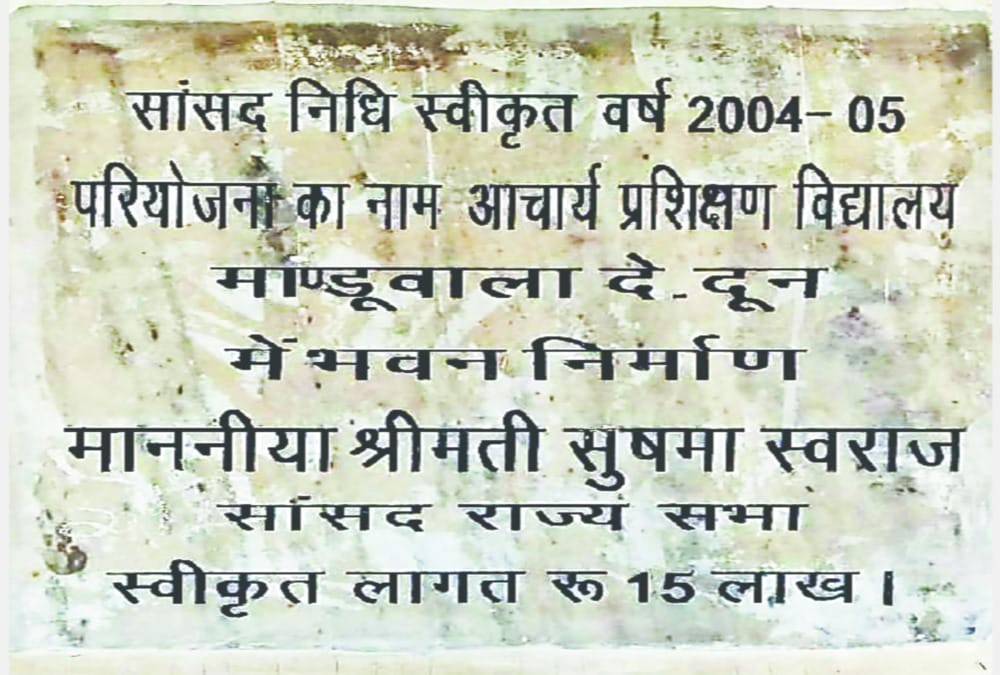 सांसद निधि स्वीकृत वर्ष 2004- 05
परियोजना का नाम आचार्य प्रशिक्षण विद्यालय
माण्डूवाला दे - दून
में भवन निर्माण
माननीया श्रीमती सुषमा स्वराज
सांसद राज्य सभा
स्वीकृत लागत रू 15 लाख ।